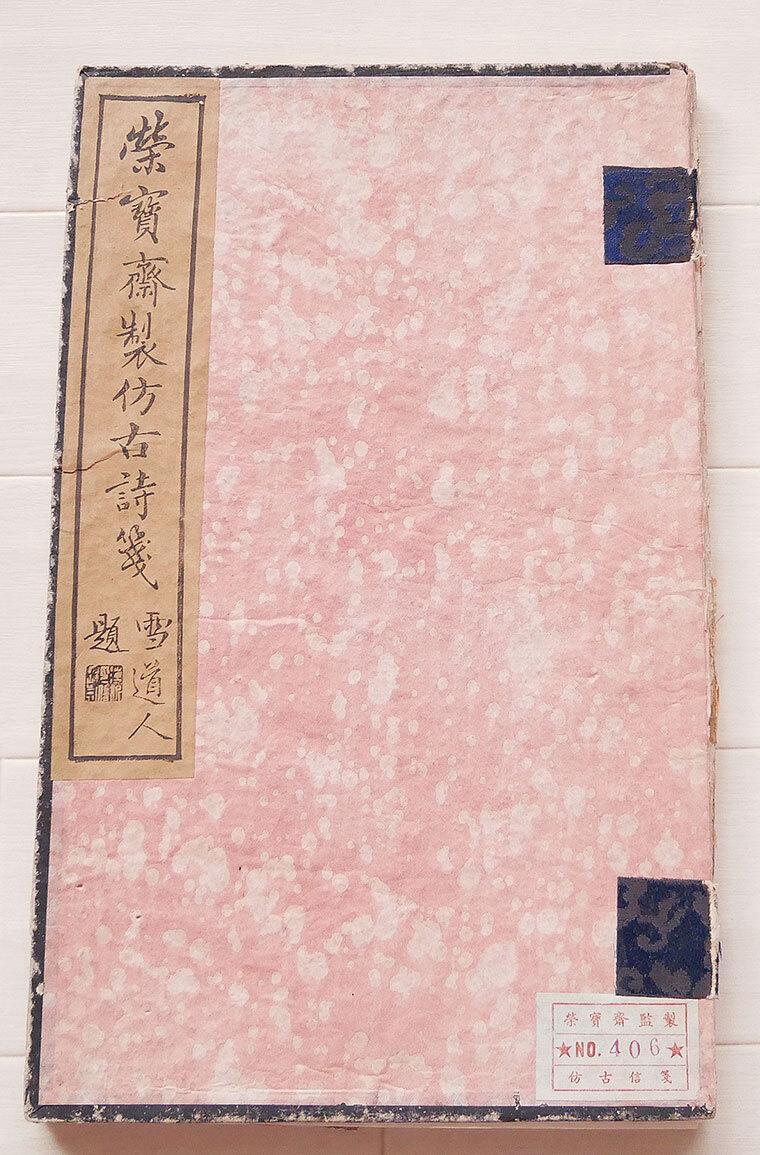 榮寶齋製仿古詩箋
雪道人
題
榮寶齋監製
★NO. 406★
仿古信箋